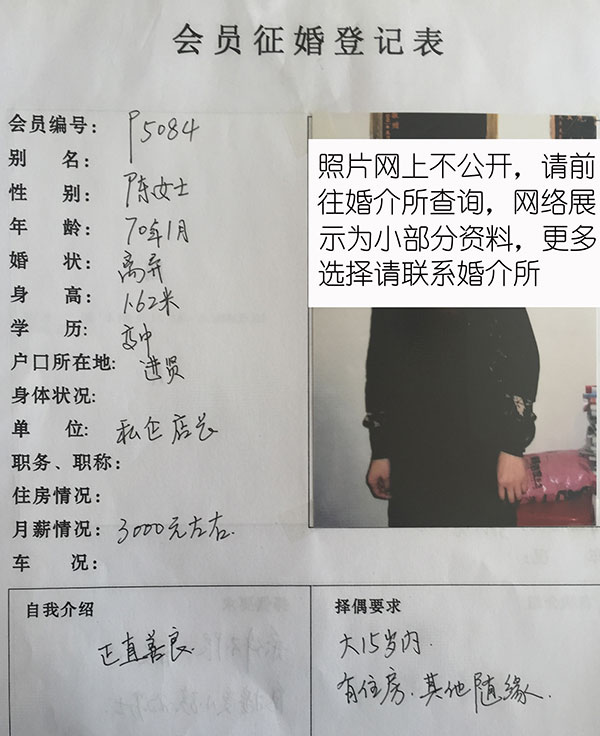 会员征婚登记表
会员编号: P5084
别 名:
性 别: 陈女士
年 龄: 70年1月
婚 状: 离异
身 高: 1.62米
学 历: 高中
户口所在地: 进贤
身体状况:
单 位: 私企店长
职务、职称:
住房情况:
月薪情况: 3000元左右.
车 况:
照片网上不公开，请前
往婚介所查询，网络展
示为小部分资料，更多
选择请联系婚介所
自我介绍
正直善良.
择偶要求
大15岁内.
有住房.其他随缘.